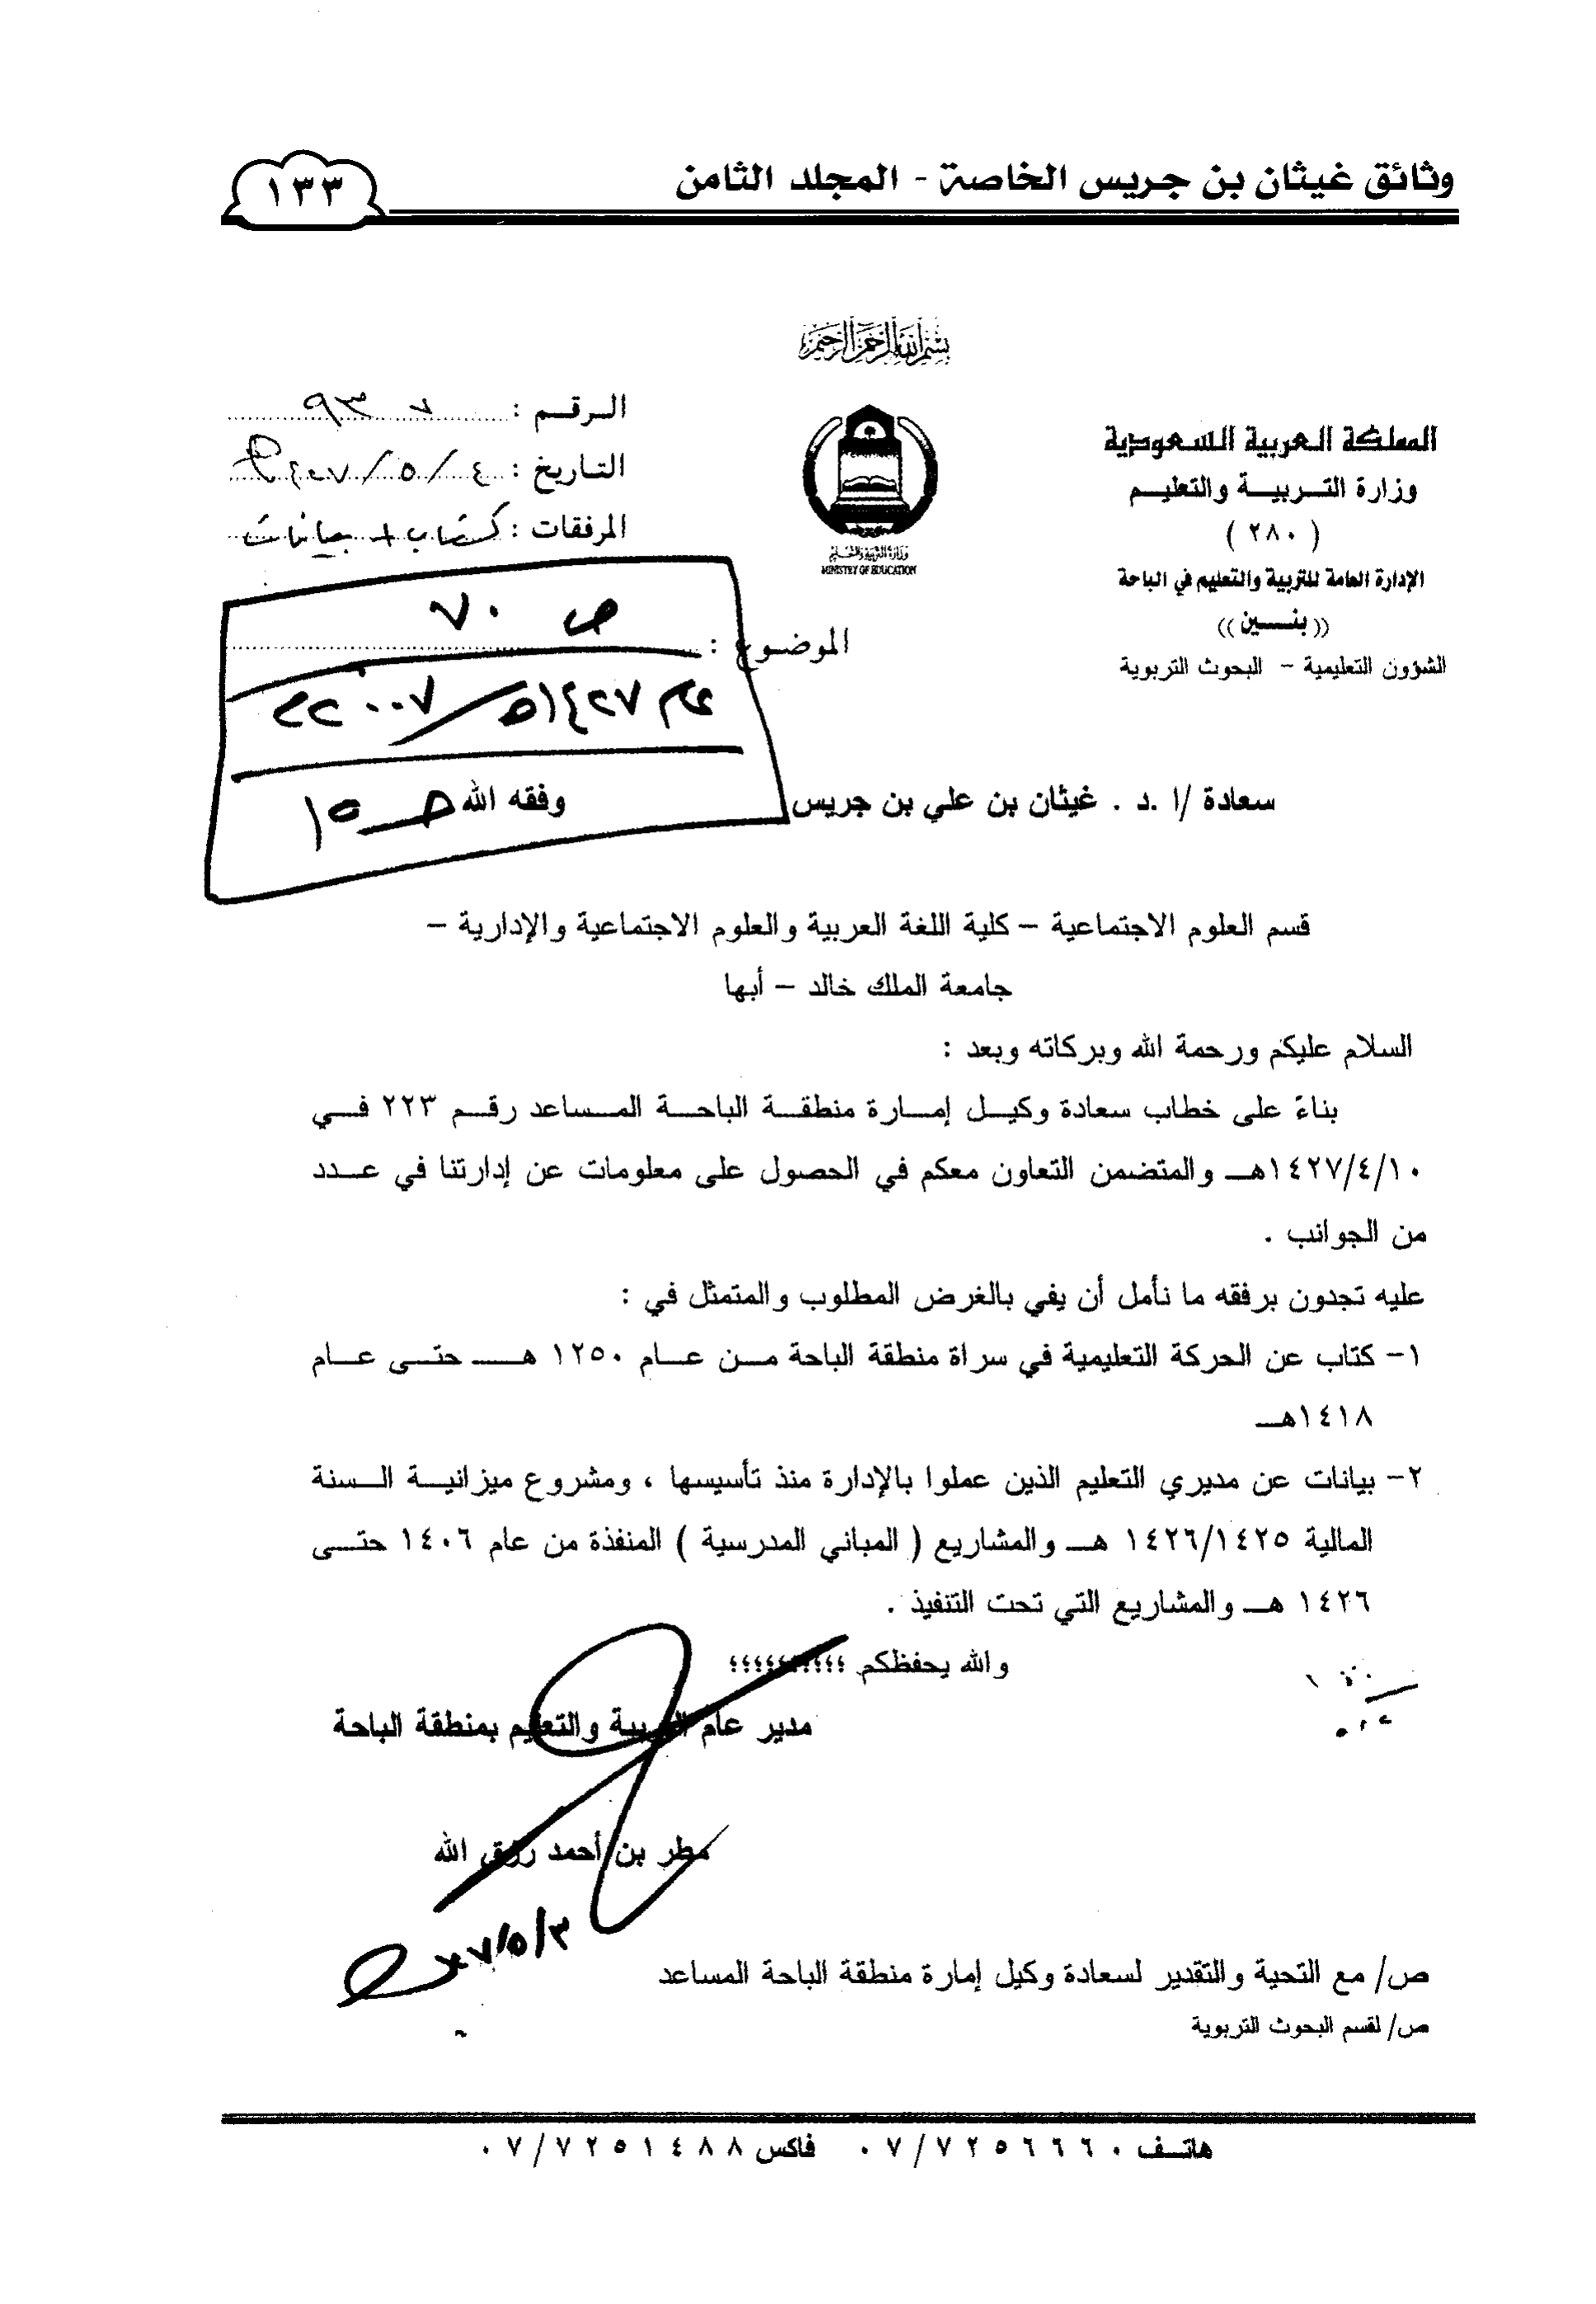 وثائق غيثان بن جريس الخاصة - المجلد الثامن
١٣٣
بسم الله الرحمن الرحيم
المملكة العربية السعودية
وزارة التربية والتعليم
( ٢٨٠ )
الإدارة العامة للتربية والتعليم في الباحة
(( بنين ))
الشؤون التعليمية - البحوث التربوية
وزارة التربية والتعليم
MINISTRY OF EDUCATION
الرقم :
التاريخ : ٤ / ٥ /
المرفقات : كتاب + بيانات
الموضوع :
ص ٧٠
١٤٢٧هـ / ٢٠٠٧م
سعادة /ا .د . غيثان بن علي بن جريس وفقه الله
قسم العلوم الاجتماعية – كلية اللغة العربية والعلوم الاجتماعية والإدارية –
جامعة الملك خالد – أبها
السلام عليكم ورحمة الله وبركاته وبعد :
بناءً على خطاب سعادة وكيل إمارة منطقة الباحة المساعد رقم ٢٢٣ في
١٤٢٧/٤/١٠هـ والمتضمن التعاون معكم في الحصول على معلومات عن إدارتنا في عدد
من الجوانب .
عليه تجدون برفقه ما نأمل أن يفي بالغرض المطلوب والمتمثل في :
١- كتاب عن الحركة التعليمية في سراة منطقة الباحة من عام ١٢٥٠ هـ حتى عام
١٤١٨هـ
٢- بيانات عن مديري التعليم الذين عملوا بالإدارة منذ تأسيسها ، ومشروع ميزانية السنة
المالية ١٤٢٦/١٤٢٥ هـ والمشاريع ( المباني المدرسية ) المنفذة من عام ١٤٠٦ حتى
١٤٢٦ هـ والمشاريع التي تحت التنفيذ .
والله يحفظكم ؛؛؛؛؛؛؛؛؛؛
مدير عام التربية والتعليم بمنطقة الباحة
مطر بن أحمد رزق الله
ص/ مع التحية والتقدير لسعادة وكيل إمارة منطقة الباحة المساعد
ص/ لقسم البحوث التربوية
هاتف ٠٧/٧٢٥٦٦٦٠ فاكس ٠٧/٧٢٥١٤٨٨